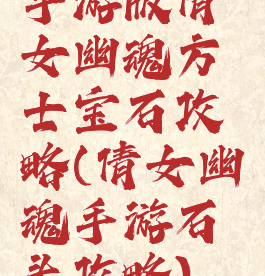 手游版倩
女幽魂方
士宝石攻
略(倩女幽
魂手游石
头攻略)